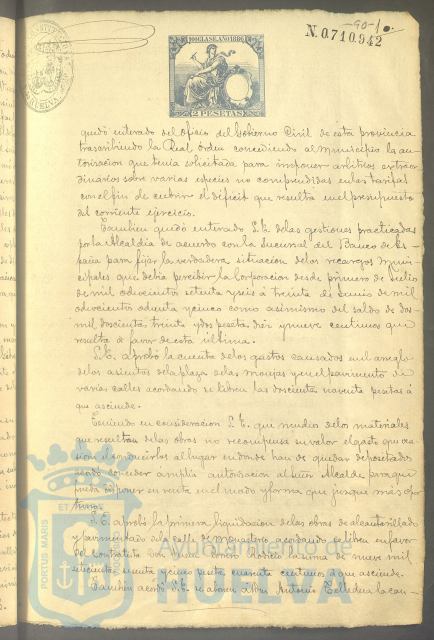 -90-
N.0.710.942
10ª CLASE. AÑO 1886
2 PESETAS
HUELVA
quedó enterado del oficio del Gobierno Civil de esta provincia
trascribiendo la Real órden concediendo al Municipio la au-
torizacion que tenia solicitada para imponer arbitrios extraor-
dinarios sobre varias especies no comprendidas en las tarifas
con el fin de cubrir el déficit que resulta en el presupuesto
del corriente ejercicio.
Tambien quedó enterado S.E. de las gestiones practicadas
por la Alcaldia de acuerdo con la Sucursal del Banco de Es-
paña para fijar la verdadera situacion de los recargos muni-
cipales que debia percibir la Corporacion desde primero de Julio
de mil ochocientos setenta y seis á treinta de Junio de mil
ochocientos ochenta y cinco como asimismo del saldo de dos
mil doscientas treinta y dos pesetas diez y nueve centimos que
resulta á favor de esta última.
S.E. aprobó la cuenta de los gastos causados en el arreglo
de los asientos de la plaza de las Monjas y en el pavimento de
varias calles acordando se libren las doscientas noventa pesetas á
que asciende.
Teniendo en consideracion S.E. que muchos de los materiales
que resultan de las obras no recompensa su valor el gasto que oca-
siona el conducirlos al lugar en donde han de quedar depositados
acordó conceder ámplia autorizacion al Señor Alcalde para que
pueda disponer su venta en el modo y forma que juzgue mas opor-
tuno.
S.E. aprobó la primera liquidacion de las obras de alcantarillado
y pavimentado de la calle de acordando se libren en favor
del contratista Don la suma de nueve mil
setecientas y cinco pesetas cuarenta centimos á que asciende.
Tambien acordó S.E. se abonen á Don Antonio la can-
PORTUS MARIS ET
Ayuntamiento de
HUELVA